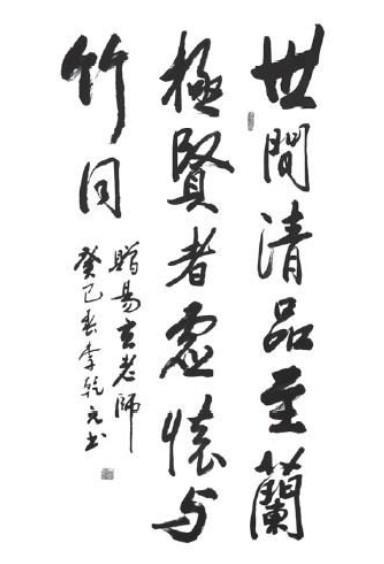 世間清品至蘭
極賢者虛懷与
竹同
贈易玄老師
癸巳春李乾元書